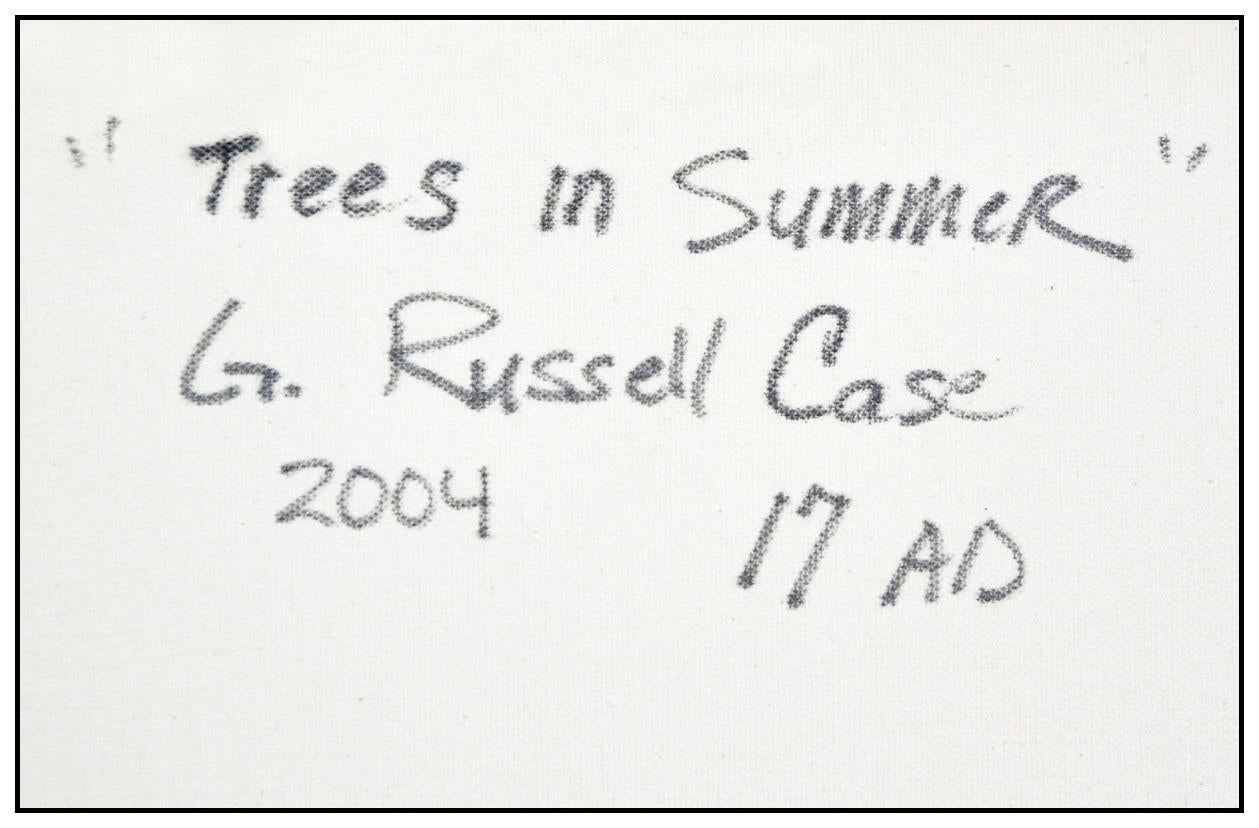 "Trees in Summer"
G. Russell Case
2004 17 AD